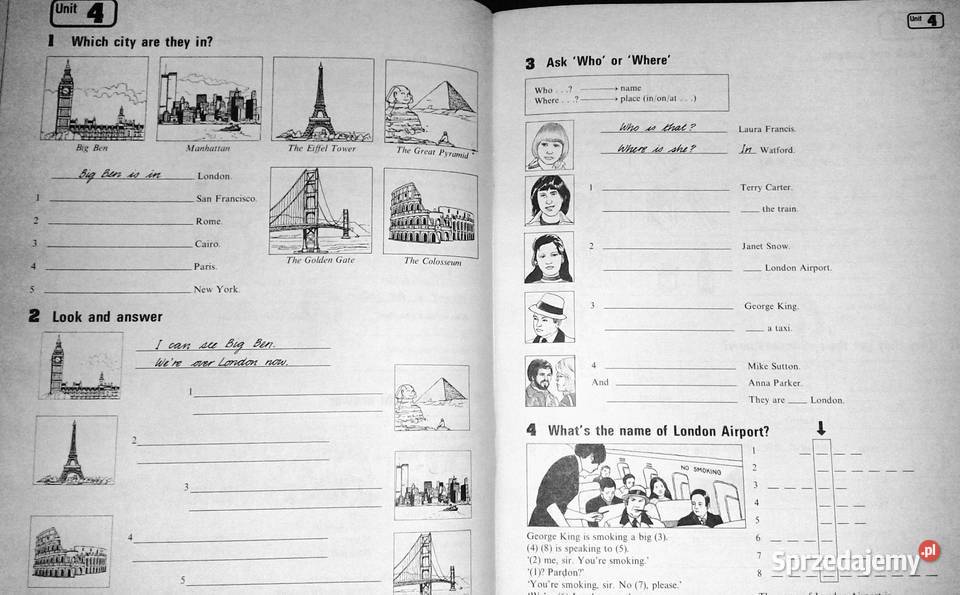 Unit 4
1 Which city are they in?
Big Ben
Manhattan
The Eiffel Tower
The Great Pyramid
Big Ben is in London.
1 San Francisco.
2 Rome.
3 Cairo.
4 Paris.
5 New York.
The Golden Gate
The Colosseum
2 Look and answer
I can see Big Ben.
We're over London now.
1
2
3
4
5
Unit 4
3 Ask 'Who' or 'Where'
Who . . .? → name
Where . . .? → place (in/on/at . . .)
Who is that? Laura Francis.
Where is she? In Watford.
1 Terry Carter.
___ the train.
2 Janet Snow.
___ London Airport.
3 George King.
___ a taxi.
4 Mike Sutton.
And Anna Parker.
They are ___ London.
4 What's the name of London Airport?
NO SMOKING
George King is smoking a big (3).
(4) (8) is speaking to (5).
'(2) me, sir. You're smoking.'
'(1)? Pardon?'
'You're smoking, sir. No (7), please.'
1
2
3
4
5
6
7
8
Sprzedajemy.pl